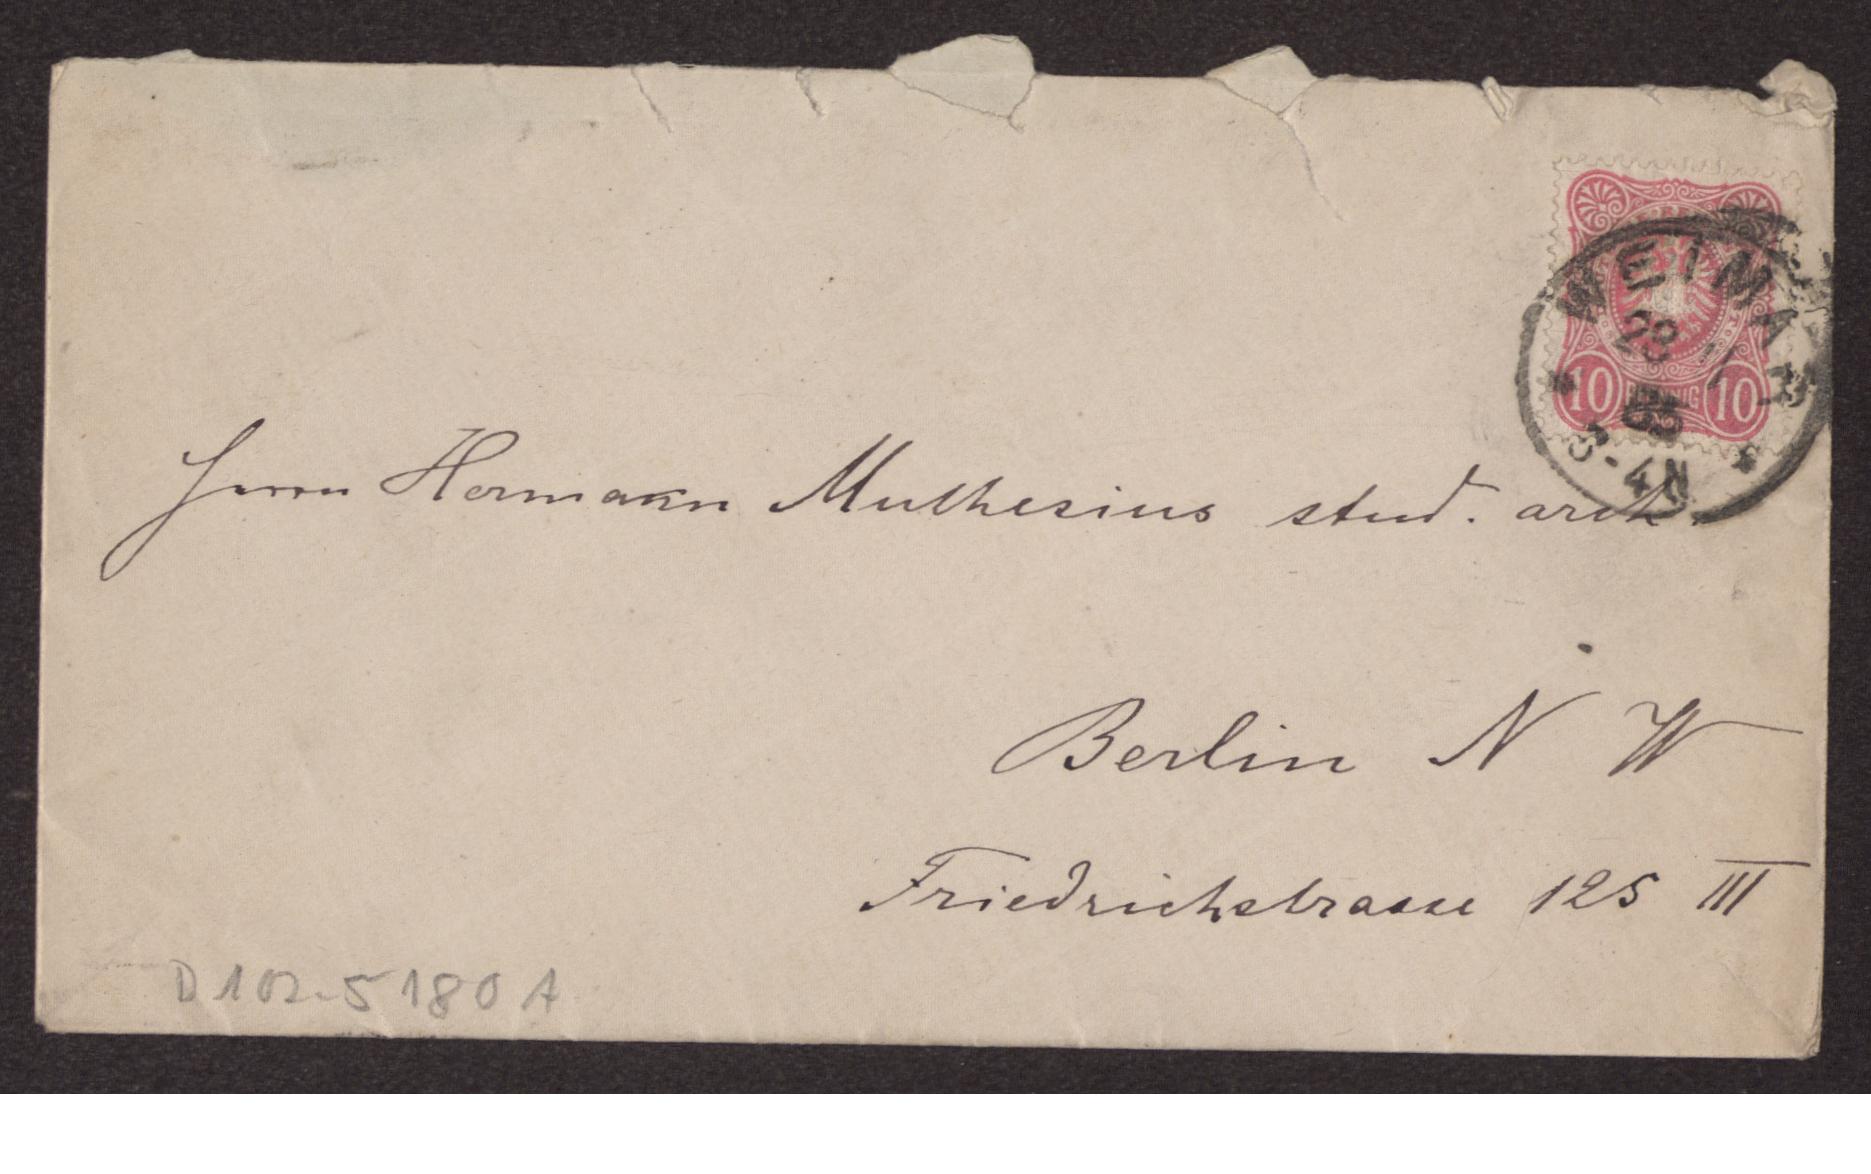 WEIMAR
10 10
3-4N
Herrn Hermann Muthesius stud. arch.
Berlin N W
Friedrichstrasse 125 III
D102-5180 A